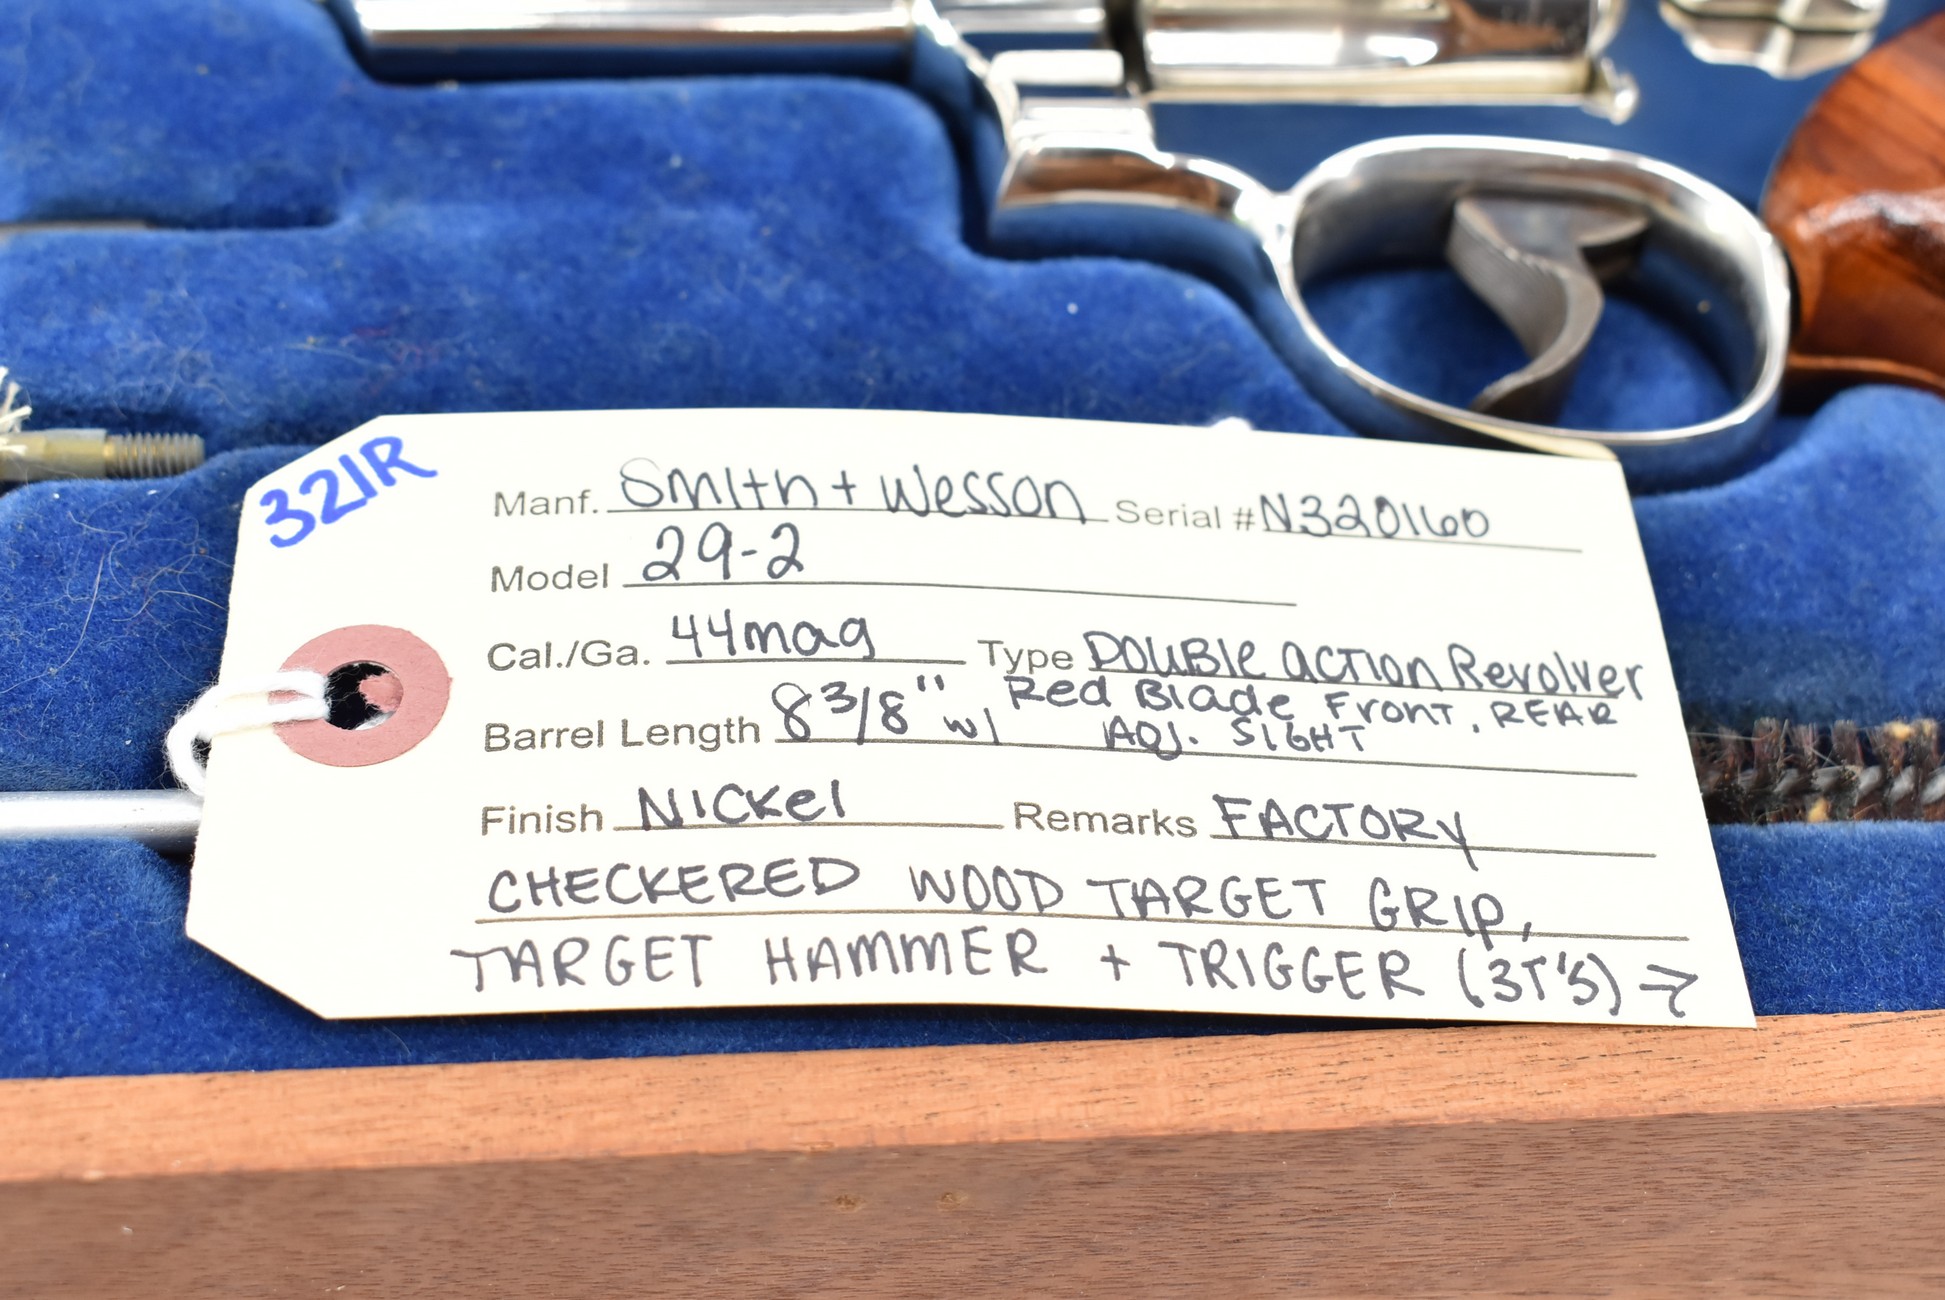 321R
Manf. Smith + Wesson Serial # N320160
Model 29-2
Cal./Ga. 44mag Type DOUBLE ACTION Revolver
Barrel Length 8 3/8" w/ Red Blade Front, REAR
ADJ. SIGHT
Finish NICKel Remarks FACTORY
CHECKERED WOOD TARGET GRIP,
TARGET HAMMER + TRIGGER (3T'S) →